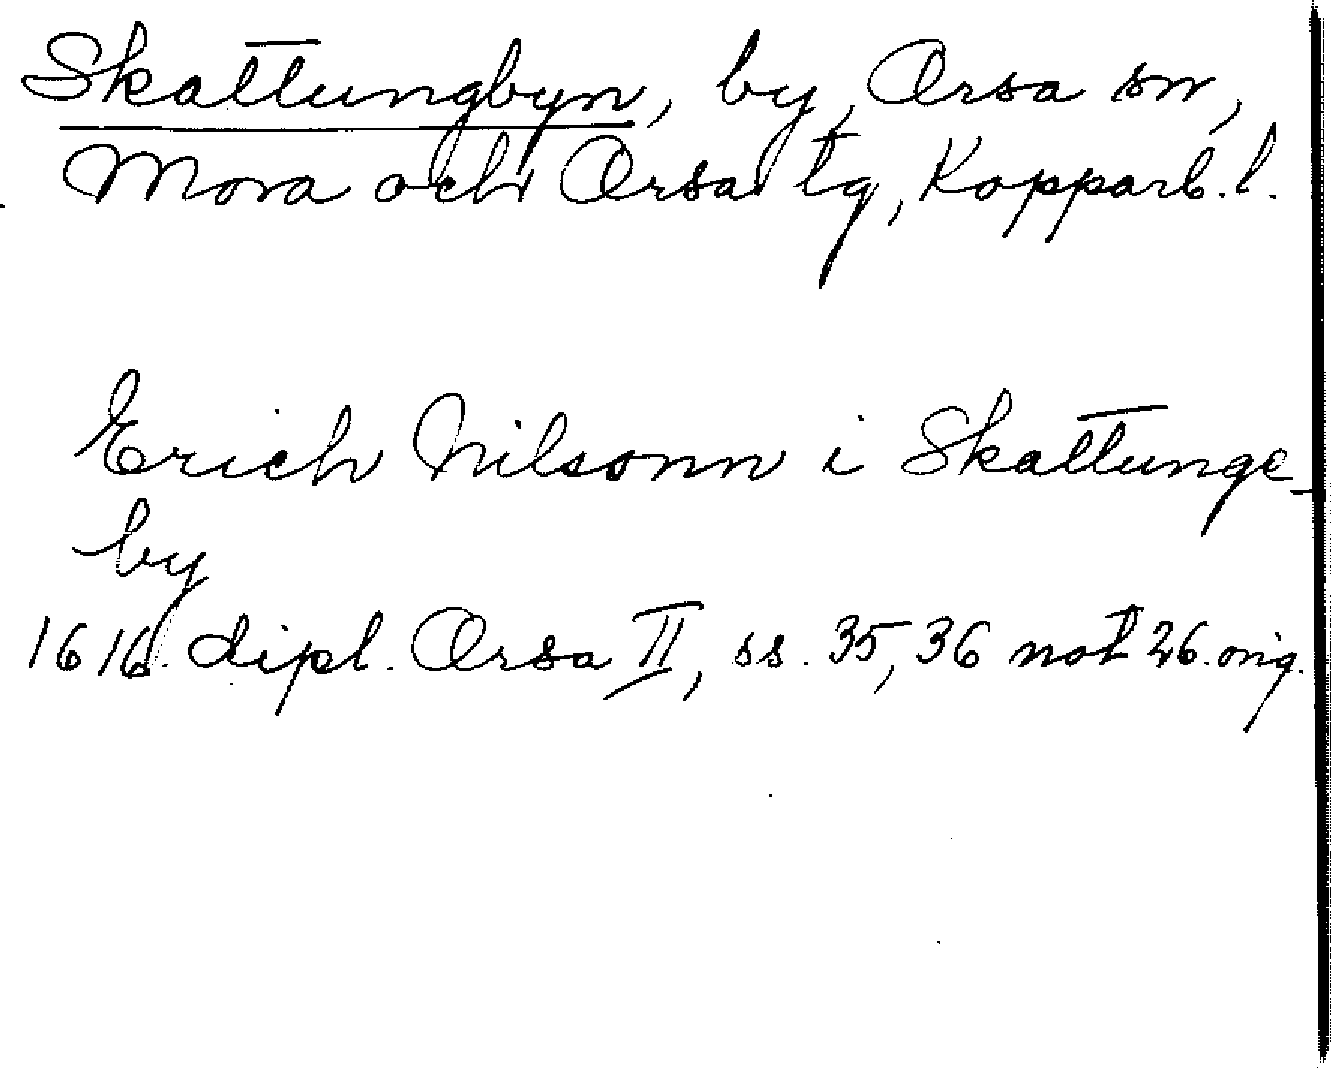 Skattungbyn, by, Orsa sn,
Mora och Orsa tg, Kopparb. l.
Erich Nilsonn i Skattunge-
by
1616. dipl. Orsa II, ss. 35, 36 not 26. orig.